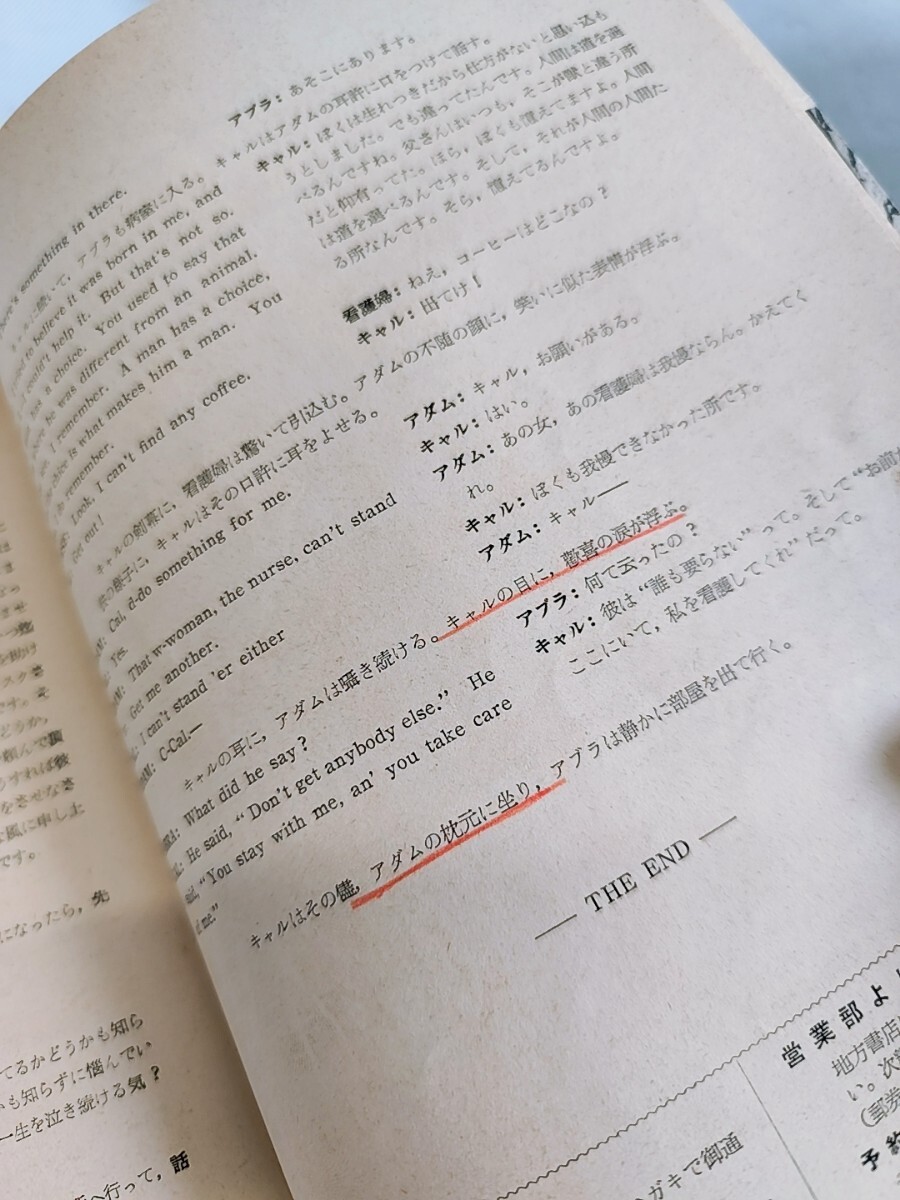 アブラ: あそこにあります。
キャルはアダムの耳許に口をつけて話す。
キャル: ぼくは生れつきだから仕方がないと思い込も
うとしました。でも違ってたんです。人間は道を選
べるんですね。父さんはいつも、そこが獣と違う所
だと仰有ってた。ほら、ぼくも憶えてますよ。人間
は道を選べるんです。そして、それが人間の人間た
る所なんです。そら、憶えてるんですよ。
看護婦: ねえ，コーヒーはどこなの？
キャル: 出てけ！
something in there.
いて，アブラも病室に入る。
to believe it was born in me, and
couldn't help it. But that's not so.
has a choice. You used to say that
he was different from an animal.
I remember. A man has a choice,
is what makes him a man. You
do remember.
Look, I can't find any coffee.
Get out!
キャルの剣幕に，看護婦は驚いて引込む。アダムの不随の顔に，笑いに似た表情が浮ぶ。
の様子に，キャルはその口許に耳をよせる。
Cal, d-do something for me.
Yes.
That w-woman, the nurse, can't stand
Get me another.
I can't stand 'er either
C-Cal.—
アダム: キャル，お願いがある。
キャル: はい。
アダム: あの女，あの看護婦は我慢ならん。かえてく
れ。
キャル: ぼくも我慢できなかった所です。
アダム: キャル——
キャルの耳に，アダムは囁き続ける。キャルの目に，歓喜の涙が浮ぶ。
What did he say?
He said, "Don't get anybody else." He
said, "You stay with me, an' you take care
me."
アブラ: 何て云ったの？
キャル: 彼は“誰も要らない”って。そして“お前が
ここにいて，私を看護してくれ”だって。
キャルはその儘，アダムの枕元に坐り，アブラは静かに部屋を出て行く。
— THE END —
営業部よ
地方書店
い。次
(郵券
予約
ガキで御通
させ
スクさ
です。そ
どうか，
頼んで
うすれば彼
をさせなさ
な風に申し上
です。
になったら，先
てるかどうかも知ら
も知らずに悩んでい
一生を泣き続ける気？
へ行って，話